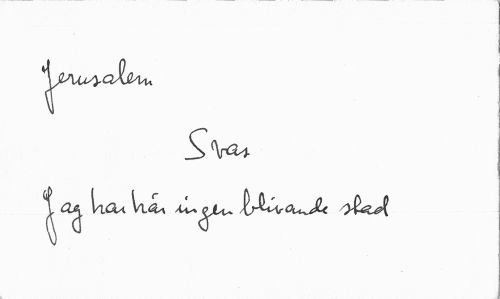 Jerusalem
Svar
Jag har här ingen blivande stad